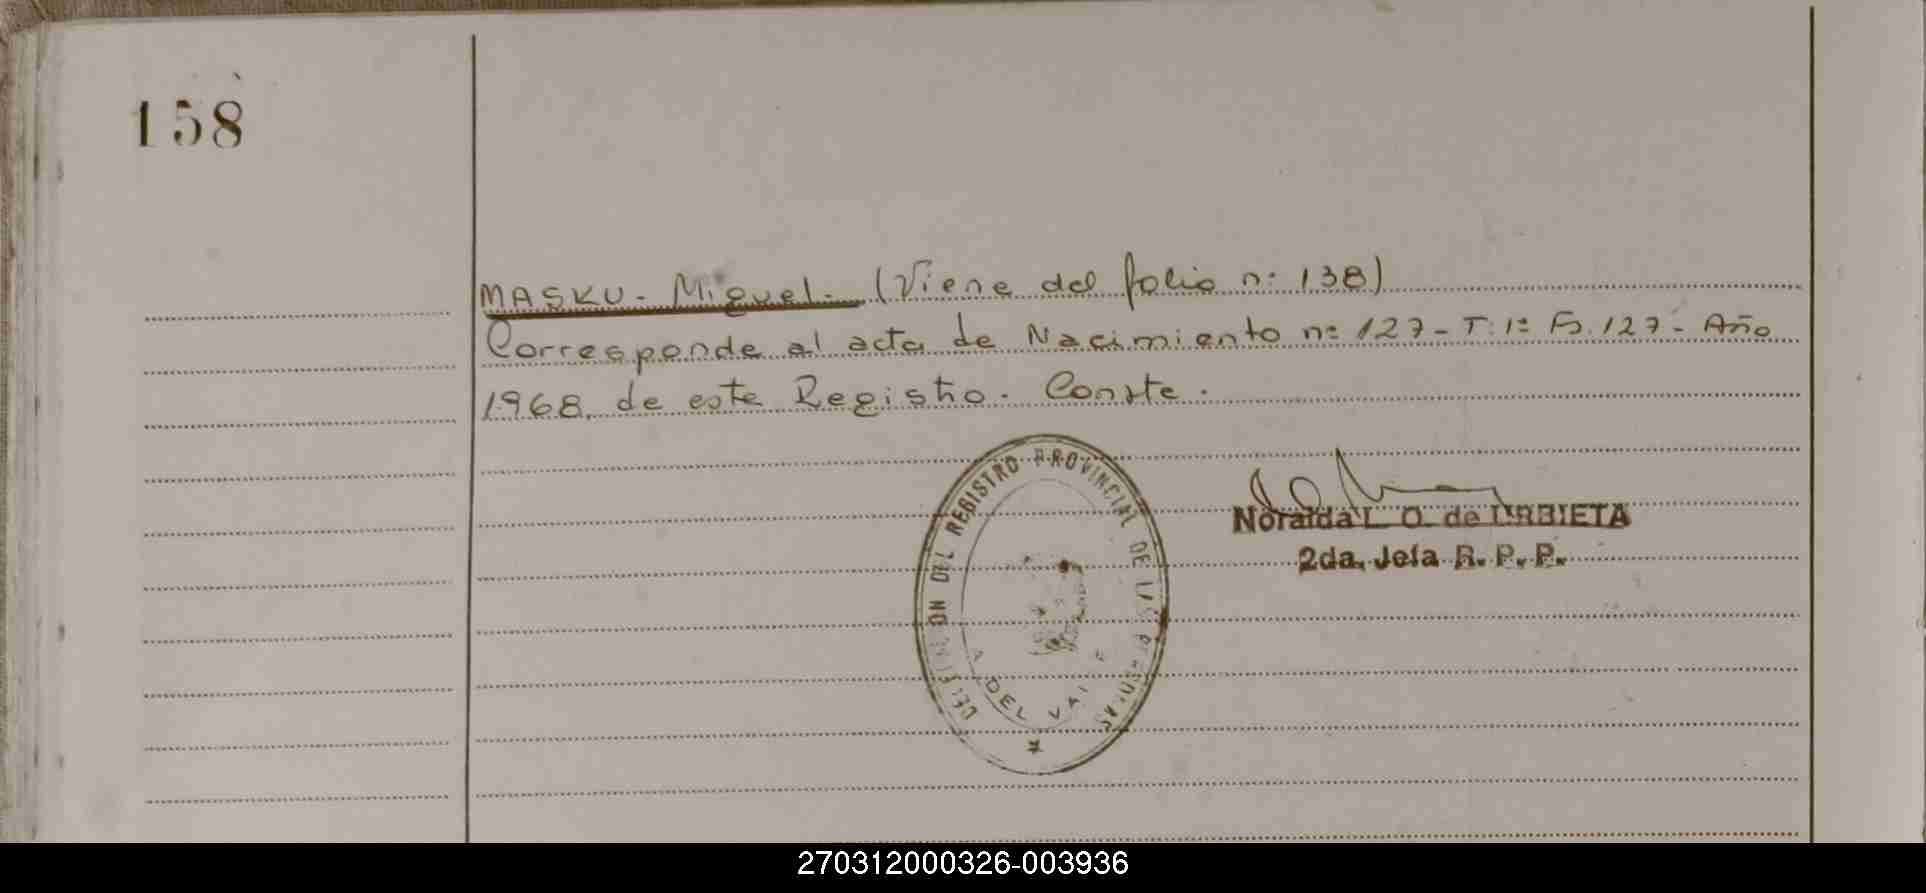 158
MASKU - Miguel - (Viene del folio nº 138)
Corresponde al acta de Nacimiento nº 127 - T: 1º Fº. 127 - Año
1968, de este Registro. Conste.
DEL REGISTRO PROVINCIAL DE LAS PERSONAS
DEL VALLE
Noraida L. O. de URBIETA
2da. Jefa R. P. P.
270312000326-003936